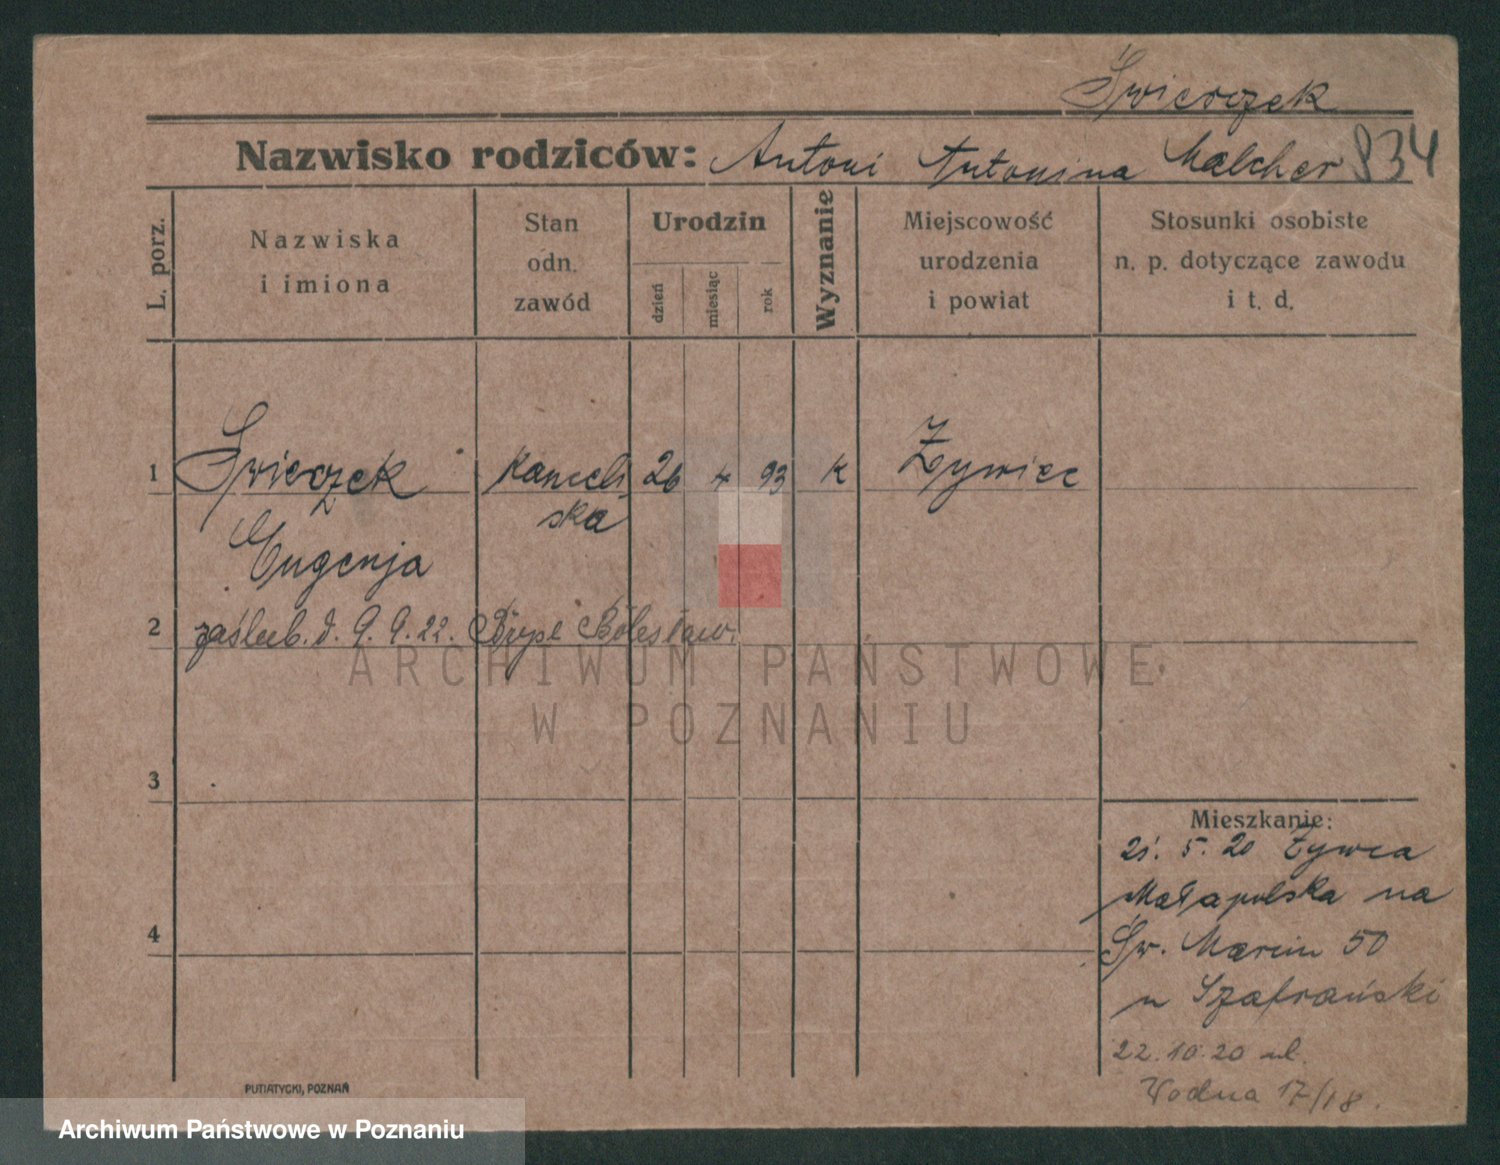 Świerczek
Nazwisko rodziców: Antoni Antonina Malcher 834
L. porz.
Nazwiska
i imiona
Stan
odn.
zawód
Urodzin
dzień
miesiąc
rok
Wyznanie
Miejscowość
urodzenia
i powiat
Stosunki osobiste
n. p. dotyczące zawodu
i t. d.
1 Świerczek 26 4 93 k Żywiec
ska
Eugenja
2 zaślub. d. 9. 9. 22. Bolesław.
ARCHIWUM PAŃSTWOWE
W POZNANIU
3
Mieszkanie:
21. 5. 20 Żywca
Małapolska na
4
Św. Marcin 50
u Szafrański
22.10.20 ul.
Wodna 17/18.
PUTIATYCKI, POZNAŃ
Archiwum Państwowe w Poznaniu